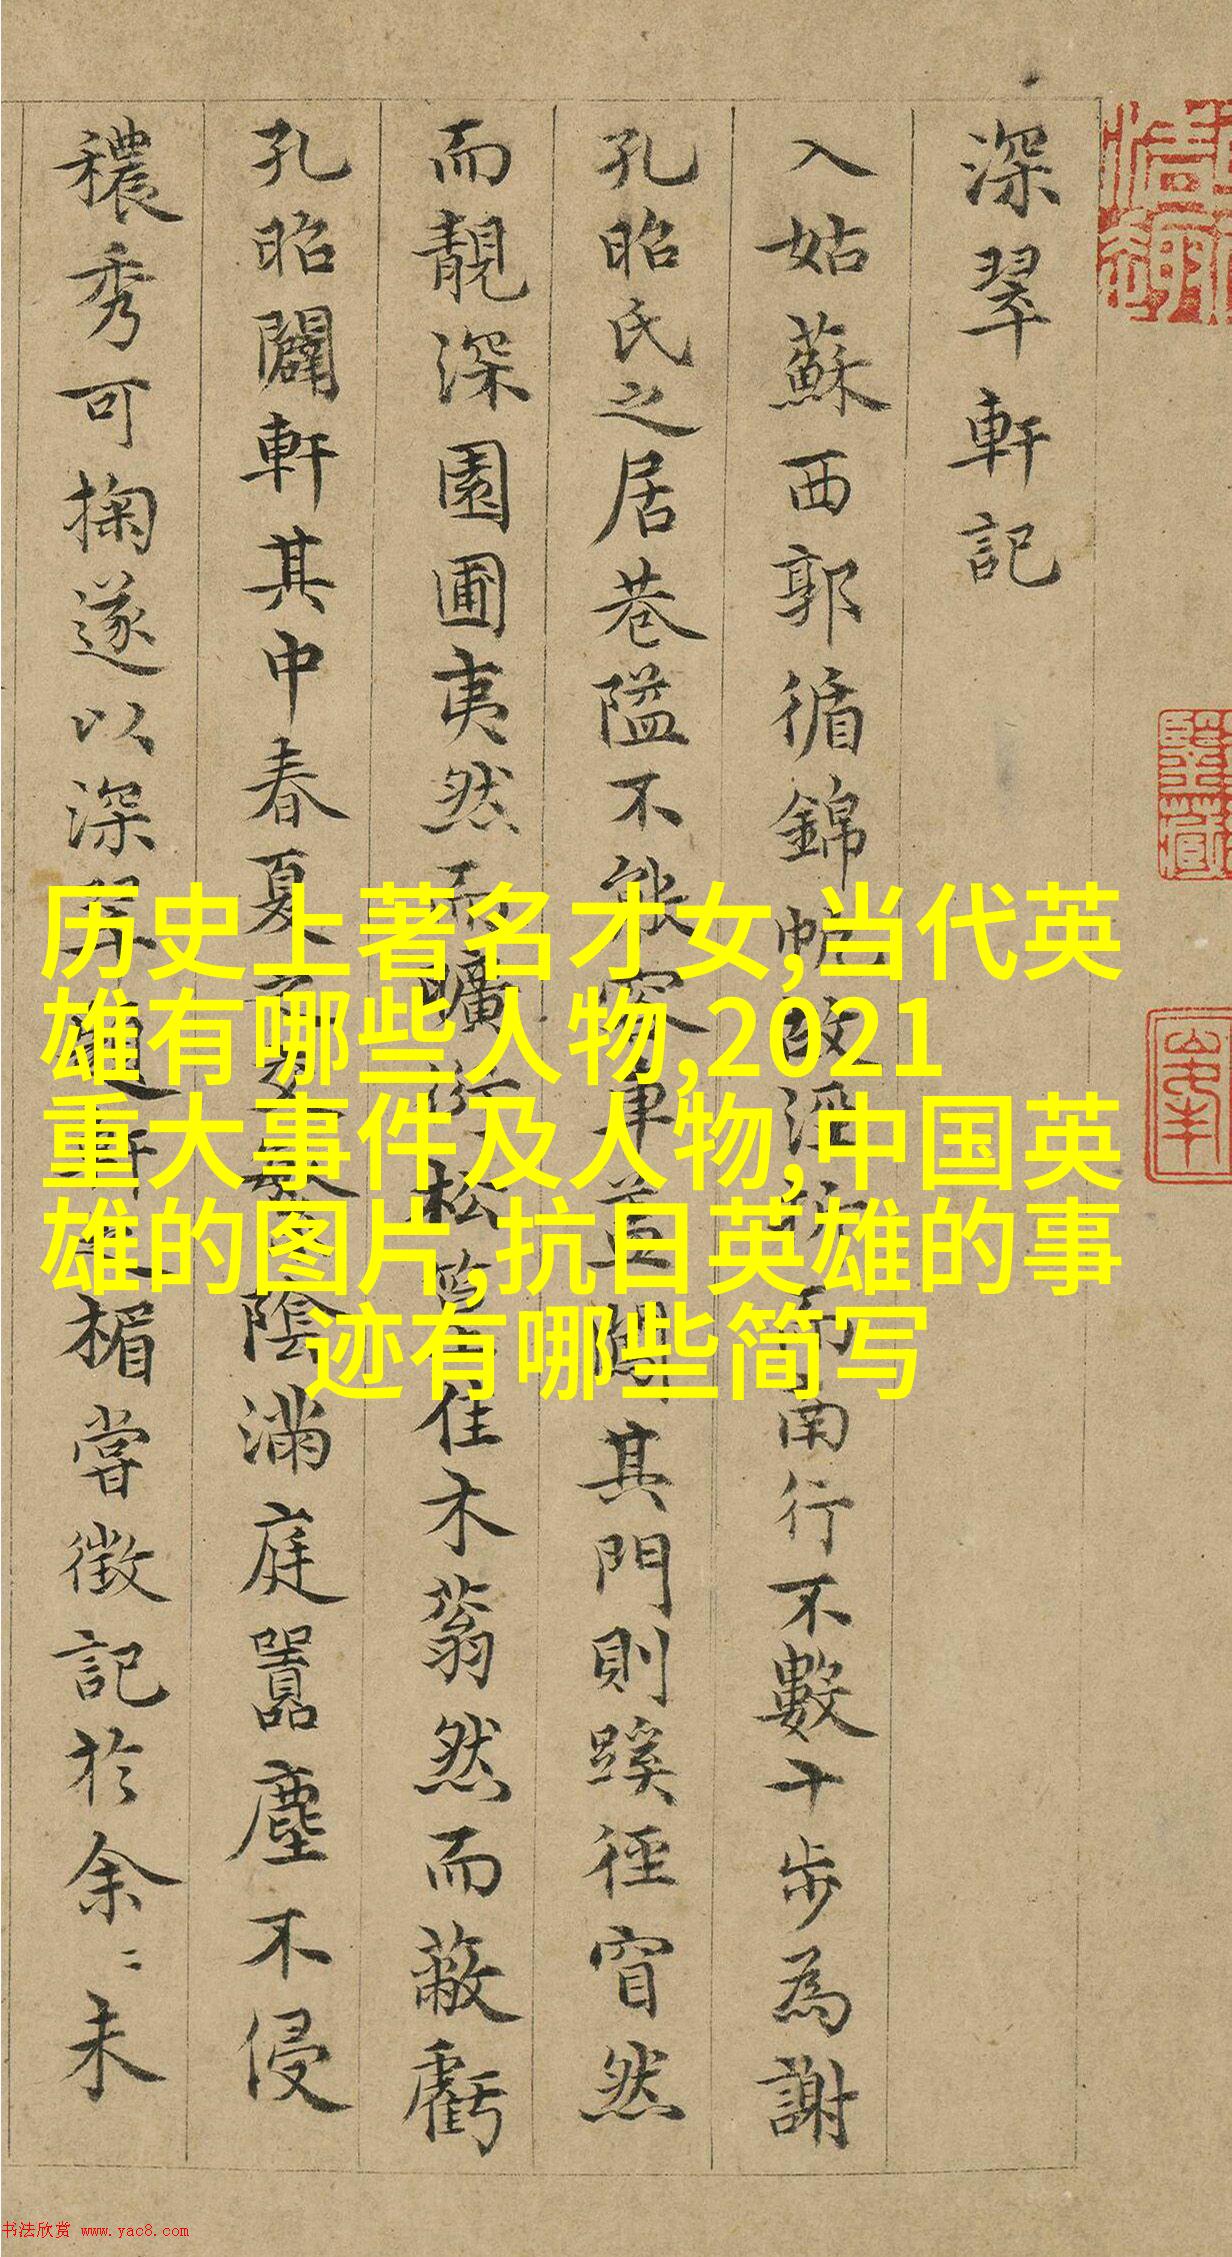 深翠軒記
入姑蘇西郭循錦帆故涇折而南行不數十步為謝
孔昭氏之居巷隘不能容車並閈其門則蹊徑窅然
而靚深園圃夷然而曠衍松篁佳木蓊然而蔽虧
孔昭闢軒其中春夏之交繁陰滿庭囂塵不侵
穠秀可掬遂以深翠題軒之楣嘗徵記於余〻未
历史上著名才女,当代英
雄有哪些人物,2021
重大事件及人物,中国英
雄的图片,抗日英雄的事
迹有哪些简写
书法欣赏 www.yac8.com